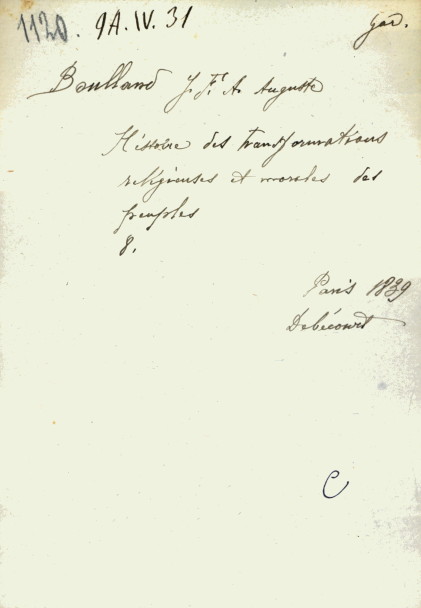 1120. 9A.IV.31 
Boulland J. Fr. A. Auguste
Histoire des transformations
religieuses et morales des
peuples
8.
Paris 1839
Debécourt
C